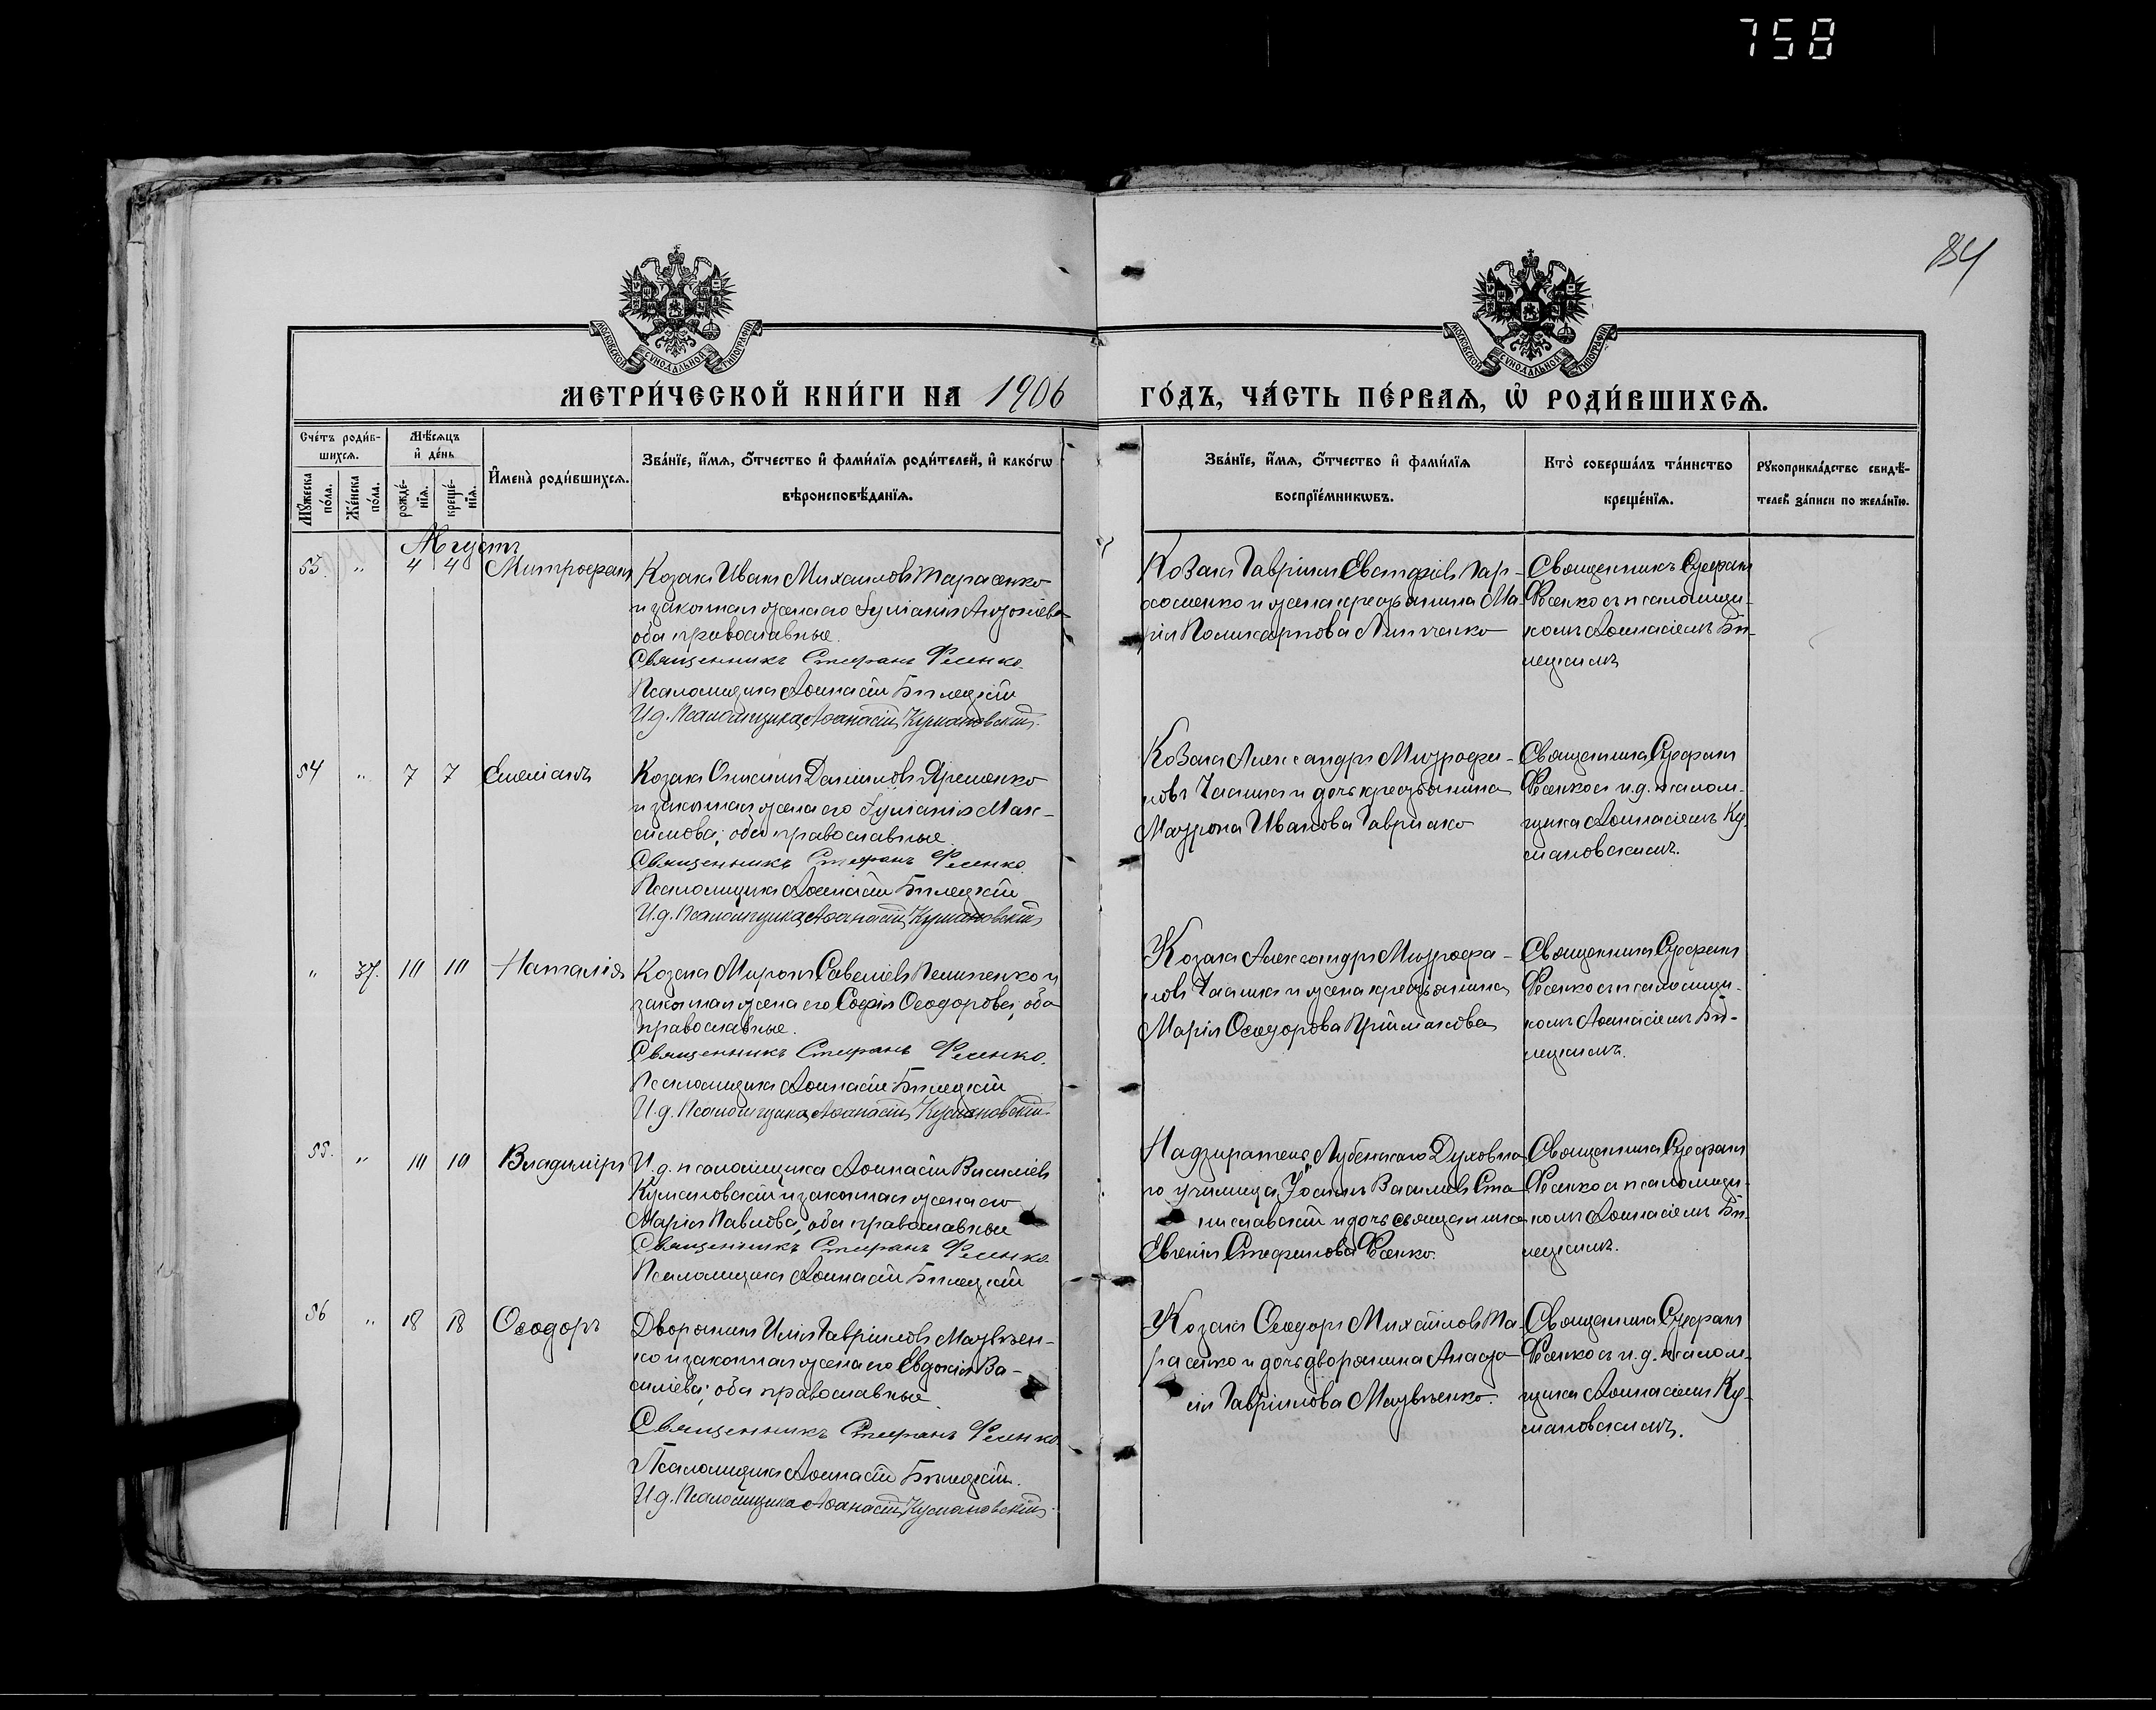 758
84
МОСКОВСКОЙ СѴНОДАЛЬНОЙ ТИПОГРАФІИ
МОСКОВСКОЙ СѴНОДАЛЬНОЙ ТИПОГРАФІИ
МЕТРИ́ЧЕСКОЙ КНИ́ГИ НА 1906
ГО́ДЪ, ЧА́СТЬ ПЕ́РВАѦ, Ѡ҆ РОДИ́ВШИХСѦ.
Сче́тъ роди́в-
шихсѧ.
Мꙋжеска по́ла.
Же́нска по́ла.
Мѣ́сѧцъ
и҆ де́нь
рожде́-
нїѧ.
креще́-
нїѧ.
И҆мена̀ роди́вшихсѧ.
Зва́нїе, и҆́мѧ, ѻ҆́тчество и҆ фами́лїѧ роди́телей, и҆ како́гѡ
вѣроисповѣ́данїѧ.
Зва́нїе, и҆́мѧ, ѻ҆́тчество и҆ фами́лїѧ
воспрїе́мникѡвъ.
Кто̀ соверша́лъ та́инство
креще́нїѧ.
Рꙋкоприкла́дство свидѣ́-
телей за́писи по жела́нїю.
Августъ
53. " 4 4 Митрофанъ
Козакъ Иванъ Михаиловъ Тарасенко
и законная жена его
оба православные.
Священникъ Стефанъ Фесенко.
Псаломщикъ Аѳанасій Билецкій
И.д. Псаломщика Аѳанасій Кумановскій.
Козакъ Гавріилъ Евстафіевъ Пар-
хоменко и жена крестьянина Ма-
рія Поликарпова
Священникъ Стефанъ
Фесенко съ псаломщи-
комъ Аѳанасіемъ Би-
лецкимъ
54 " 7 7 Емеліанъ
Козакъ Онисимъ Даніиловъ Яременко
и законная жена его Мак-
симова; оба православные.
Священникъ Стефанъ Фесенко.
Псаломщикъ Аѳанасій Билецкій
И.д. Псаломщика Аѳанасій Кумановскій
Козакъ Александръ Митрофа-
новъ и дочь крестьянина
Матрона Иванова
Священникъ Стефанъ
Фесенко съ и.д. псалом-
щика Аѳанасіемъ Ку-
мановскимъ.
" 37. 10 10 Наталія
Козакъ Миронъ Савеліевъ Пилипенко и
законная жена его Софія Ѳеодорова, оба
православные.
Священникъ Стефанъ Фесенко.
Псаломщикъ Аѳанасій Билецкій
И.д. Псаломщика Аѳанасій Кумановскій
Козакъ Александръ Митрофа-
новъ и жена крестьянина
Марія Ѳеодорова Приймакова
Священникъ Стефанъ
Фесенко съ псаломщи-
комъ Аѳанасіемъ Би-
лецкимъ.
55. " 10 10 Владиміръ
И.д. псаломщика Аѳанасій Василіевъ
Кумановскій и законная жена его
Марія Павлова; оба православные
Священникъ Стефанъ Фесенко.
Псаломщикъ Аѳанасій Билецкій
Надзиратель Лубенскаго Духовна-
го училища Іоаннъ Василіевъ Ста-
ниславскій и дочь священника
Евгенія Стефанова Фесенко.
Священникъ Стефанъ
Фесенко съ псаломщи-
комъ Аѳанасіемъ Би-
лецкимъ.
56 " 18 18 Ѳеодоръ
Дворянинъ Илія Гавріиловъ Матвѣен-
ко и законная жена его Евдокія Ва-
силіева; оба православные
Священникъ Стефанъ Фесенко
Псаломщикъ Аѳанасій Билецкій.
И.д. Псаломщика Аѳанасій Кумановскій.
Козакъ Ѳеодоръ Михайловъ Та-
расенко и дочь дворянина Анаста-
сія Гавріилова Матвѣенко.
Священникъ Стефанъ
Фесенко съ и.д. псалом-
щика Аѳанасіемъ Ку-
мановскимъ.